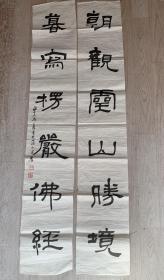 朝觀靈山勝境
暮寫楞嚴佛經